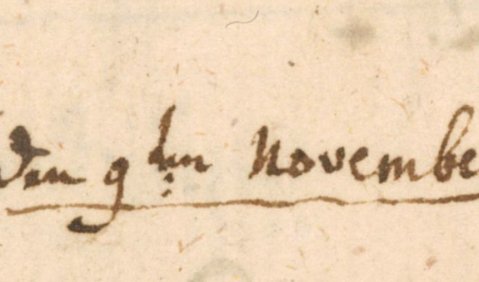 den 9ten Novembe